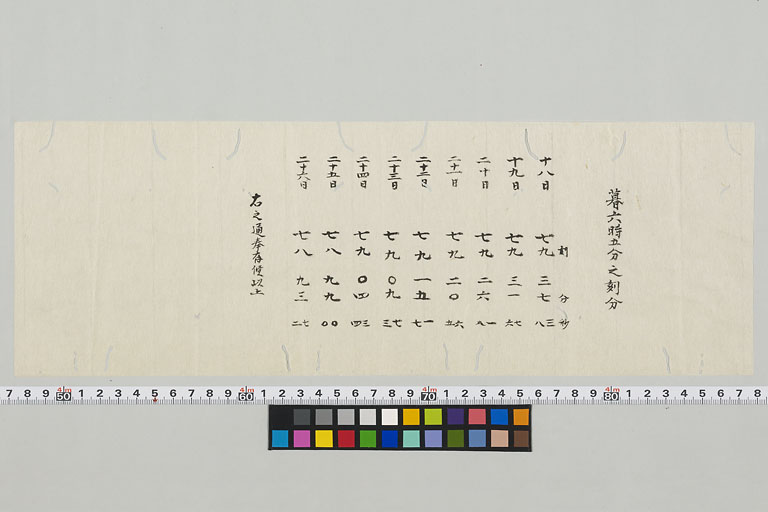 暮六時五分之刻分
刻 分 秒
十八日 七九 三七 三八
十九日 七九 三一 七六
二十日 七九 二六 一九
二十一日 七九 二〇 六五
二十二日 七九 一五 一七
二十三日 七九 〇九 七三
二十四日 七九 〇四 三四
二十五日 七八 九九 〇〇
二十六日 七八 九三 七二
右之通奉存候以上
7 8 9 50 1 2 3 4 5 6 7 8 9 60 1 2 3 4 5 6 7 8 9 70 1 2 3 4 5 6 7 8 9 80 1 2 3 4 5 6 7 8